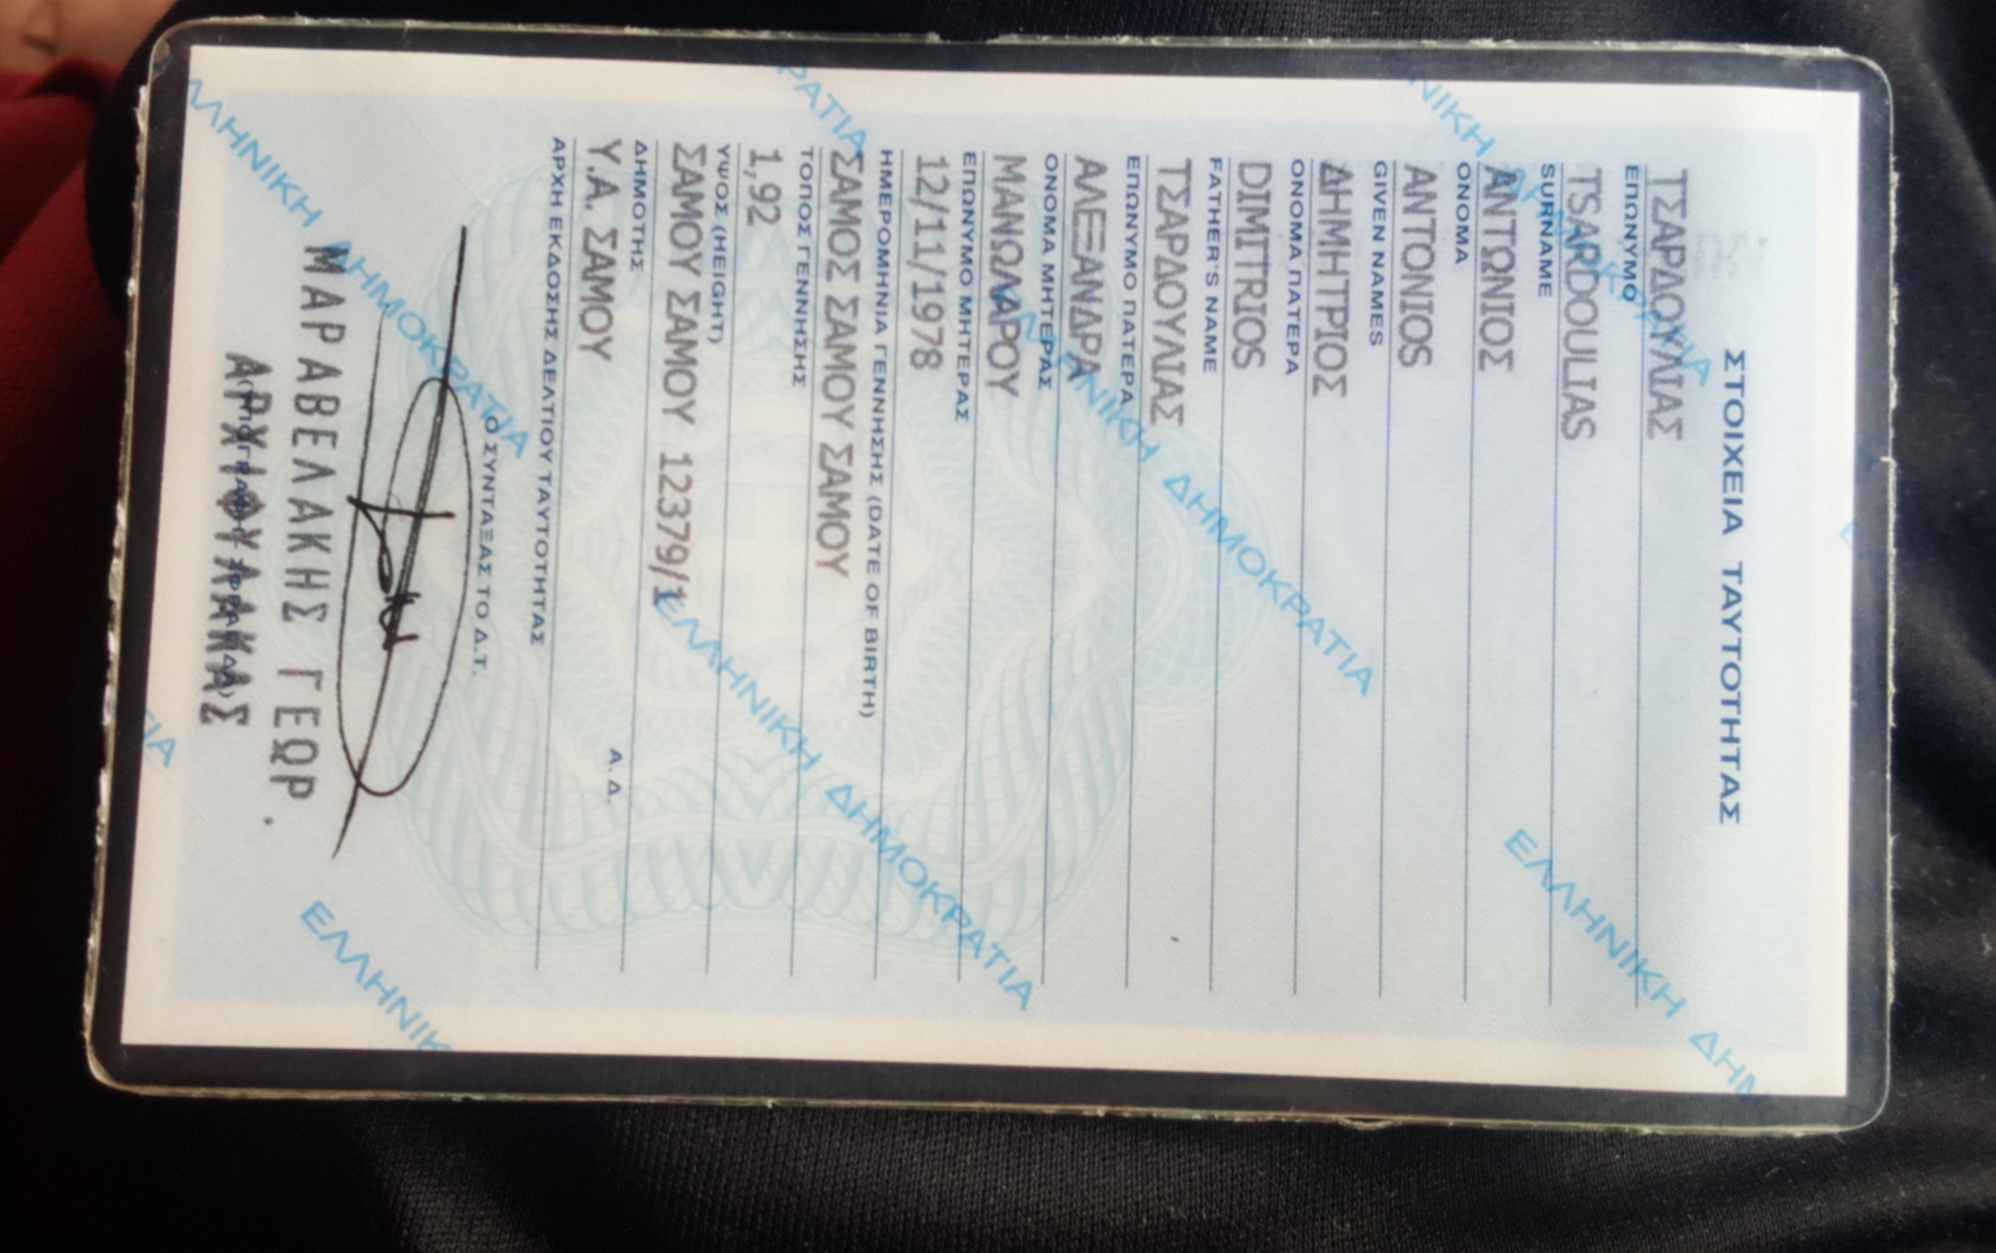 ΣΤΟΙΧΕΙΑ ΤΑΥΤΟΤΗΤΑΣ
ΤΣΑΡΔΟΥΛΙΑΣ
ΕΠΩΝΥΜΟ
TSARDOULIAS
SURNAME
ΑΝΤΩΝΙΟΣ
ΟΝΟΜΑ
ANTONIOS
GIVEN NAMES
ΔΗΜΗΤΡΙΟΣ
ΟΝΟΜΑ ΠΑΤΕΡΑ
DIMITRIOS
FATHER'S NAME
ΤΣΑΡΔΟΥΛΙΑΣ
ΕΠΩΝΥΜΟ ΠΑΤΕΡΑ
ΑΛΕΞΑΝΔΡΑ
ΟΝΟΜΑ ΜΗΤΕΡΑΣ
ΜΑΝΩΛΑΡΟΥ
ΕΠΩΝΥΜΟ ΜΗΤΕΡΑΣ
12/11/1978
ΗΜΕΡΟΜΗΝΙΑ ΓΕΝΝΗΣΗΣ (DATE OF BIRTH)
ΣΑΜΟΣ ΣΑΜΟΥ ΣΑΜΟΥ
ΤΟΠΟΣ ΓΕΝΝΗΣΗΣ
1,92
ΥΨΟΣ (HEIGHT)
ΣΑΜΟΥ ΣΑΜΟΥ 12379/1
ΔΗΜΟΤΗΣ
Υ.Α. ΣΑΜΟΥ Α.Δ.
ΑΡΧΗ ΕΚΔΟΣΗΣ ΔΕΛΤΙΟΥ ΤΑΥΤΟΤΗΤΑΣ
Ο ΣΥΝΤΑΞΑΣ ΤΟ Δ.Τ.
ΜΑΡΑΒΕΛΑΚΗΣ ΓΕΩΡ.
ΑΡΧΙΦΥΛΑΚΑΣ
ΕΛΛΗΝΙΚΗ ΔΗΜΟΚΡΑΤΙΑ
ΕΛΛΗΝΙΚΗ ΔΗΜΟΚΡΑΤΙΑ